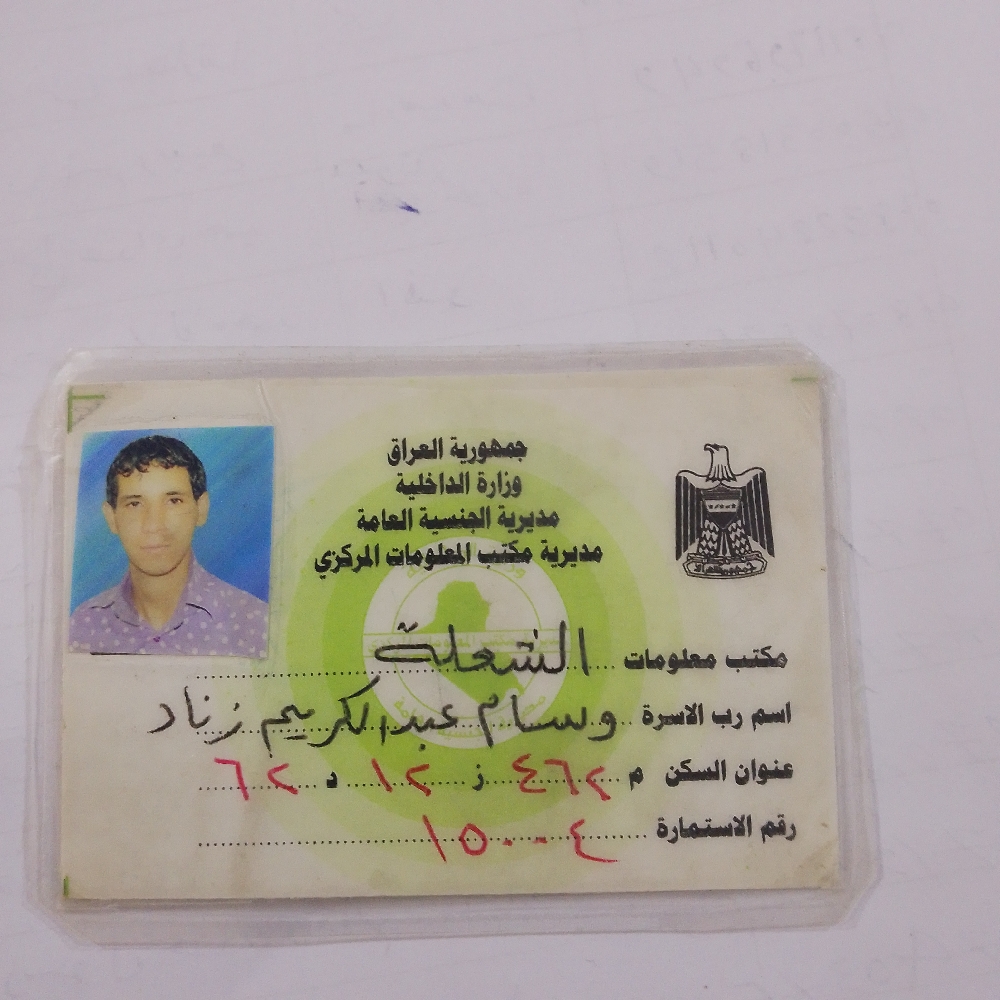 جمهورية العراق
وزارة الداخلية
مديرية الجنسية العامة
مديرية مكتب المعلومات المركزي
مكتب معلومات الشعلة
اسم رب الاسرة وسام عبد الكريم زناد
عنوان السكن م ٤٦٢ ز ١٢ د ٦٢
رقم الاستمارة ١٥٠٠٤